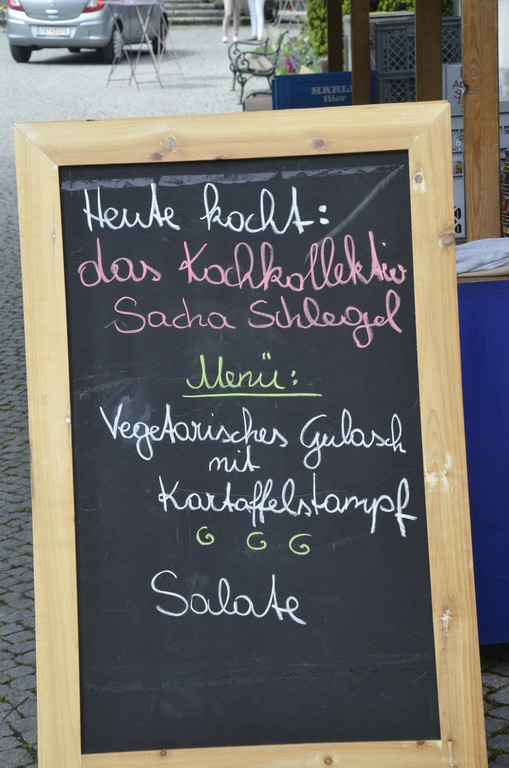 HARL
Bier
Heute kocht:
das Kochkollektiv
Sacha Schlegel
Menü:
Vegetarisches Gulasch
mit
Kartaffelstampf
Salate